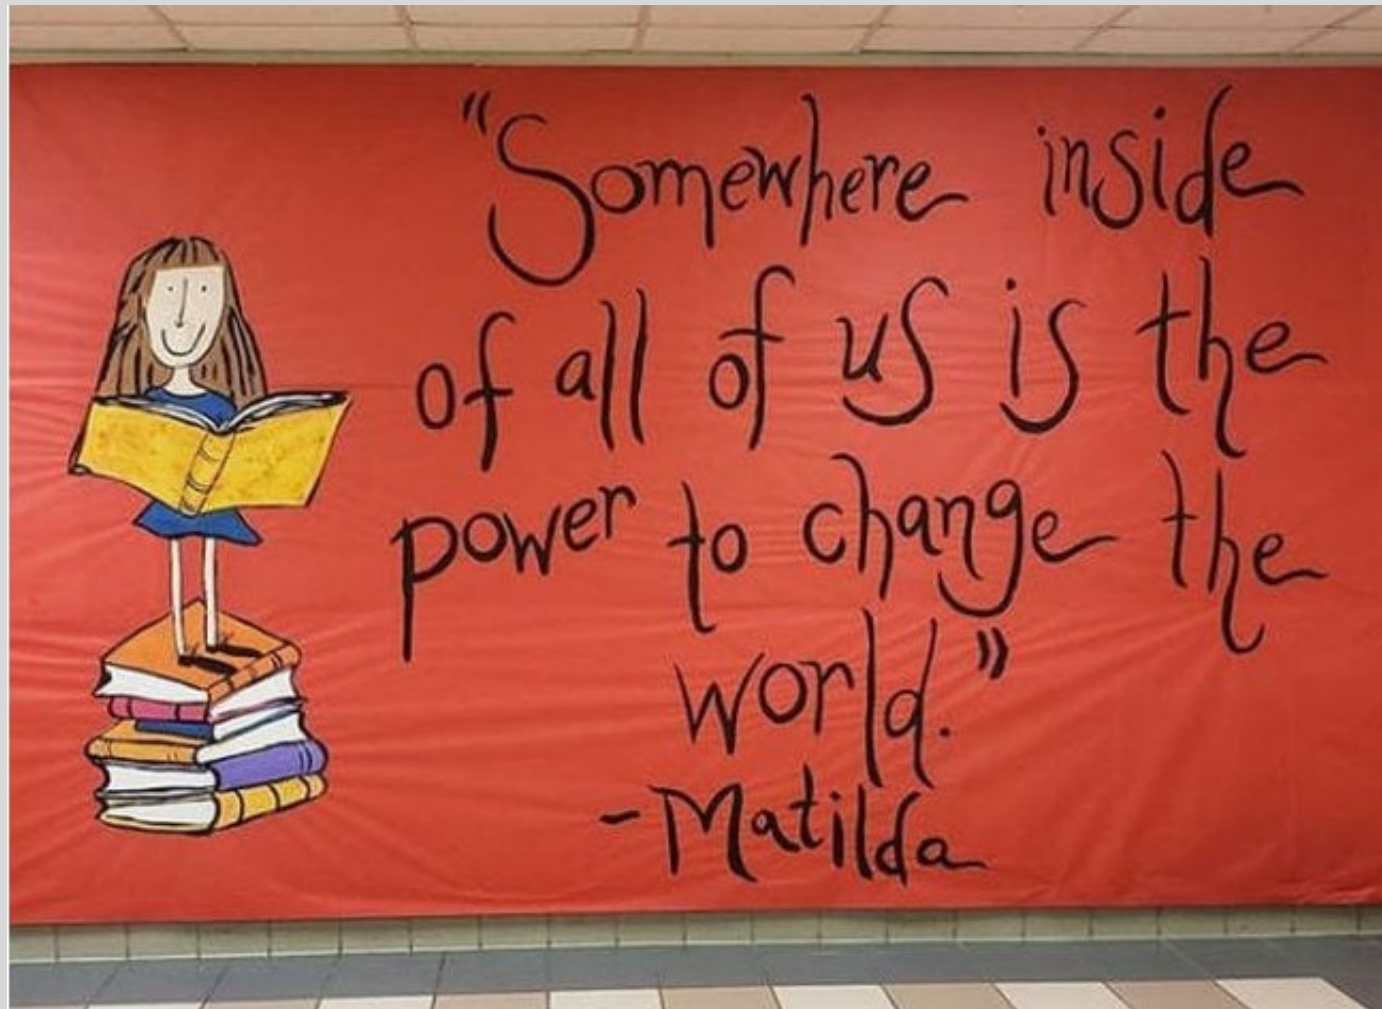 "Somewhere inside
of all of us is the
power to change the
world."
-Matilda